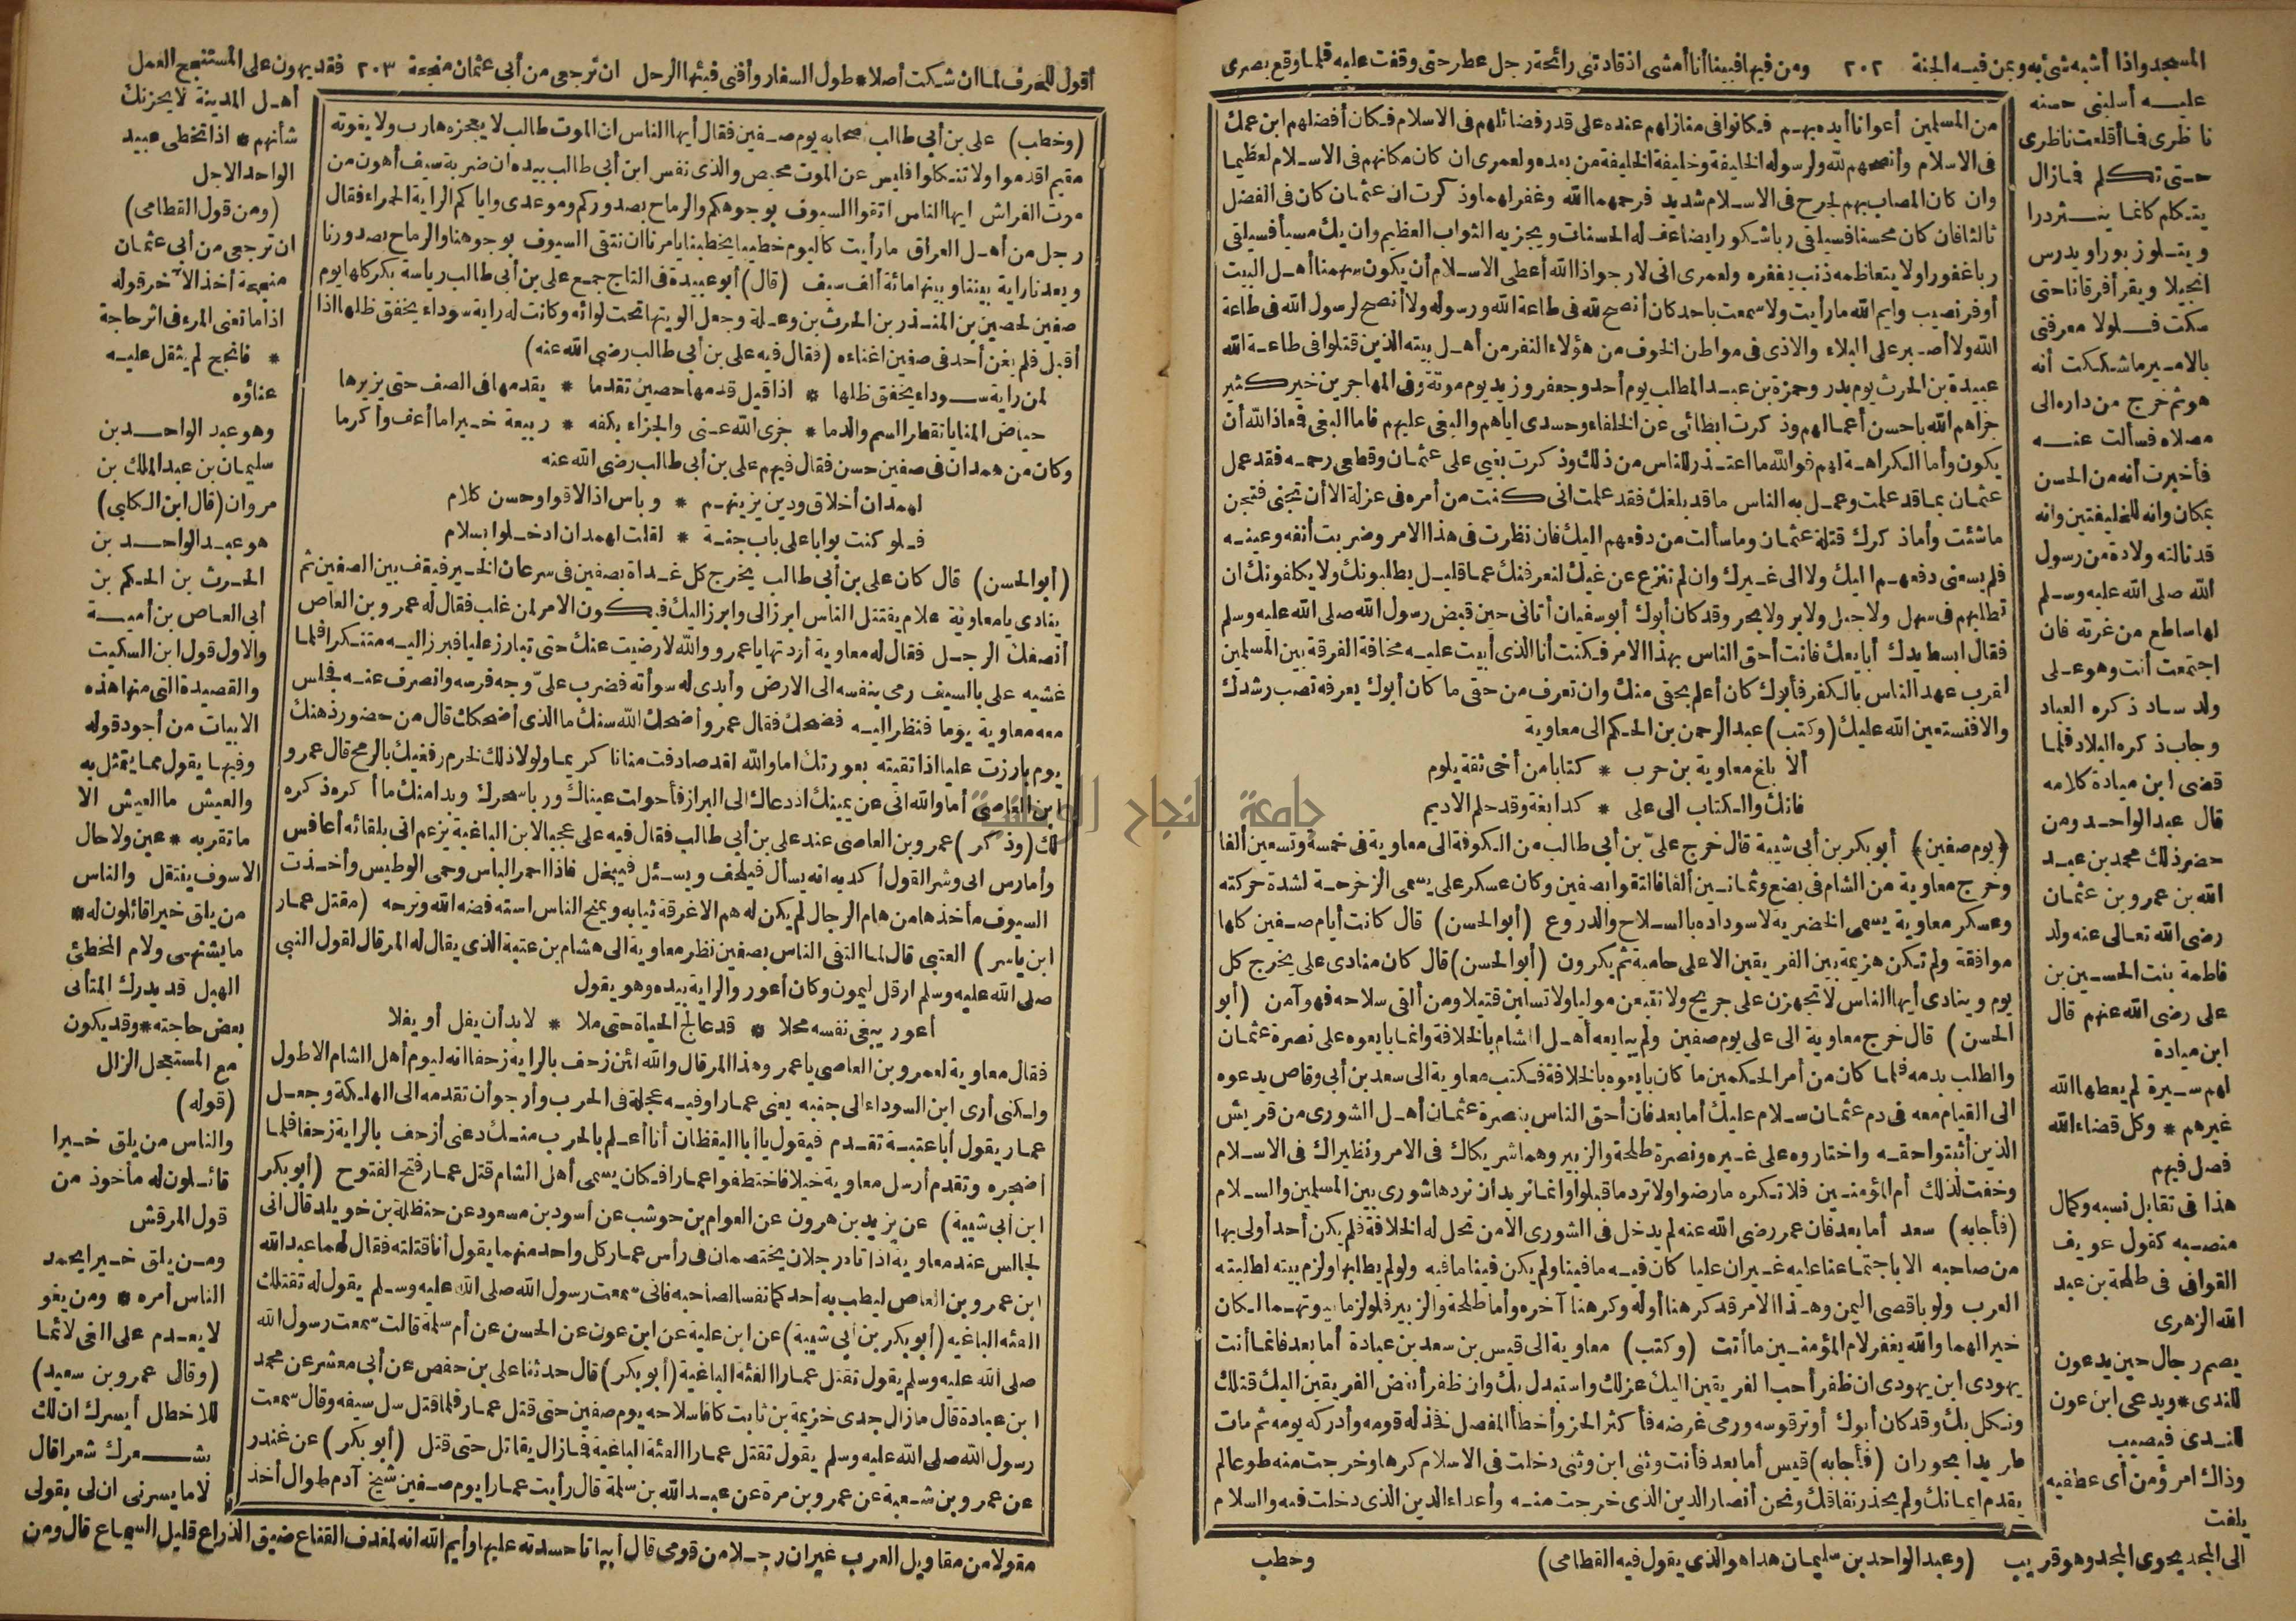 المسجد واذا أشبه شئ به وبمن فيه الجنة ٢٠٢ ومن فيها فبينا أنا أمشى اذ قادتنى رائحة رجل عطر حتى وقفت عليه فلما وقع بصرى
عليه أسلبنى حسنه
ناظرى فما أقلعت ناظرى
حتى تكلم فما زال
يتكلم كانما ينثر درا
ويتلو زبورا ويدرس
انجيلا ويقرأ فرقانا حتى
سكت فلولا معرفتى
بالامير ما شككت أنه
هو ثم خرج من داره الى
مصلاه فسألت عنه
فأخبرت أنه من الحسن
بمكان وانه للخليفتين وانه
قد نالته ولادة من رسول
الله صلى الله عليه وسلم
لها ساطع من غرته فان
اجتمعت أنت وهو على
ولد ساد ذكره العباد
وجاب ذكره البلاد فلما
قضى ابن ميادة كلامه
قال عبد الواحد ومن
حضر ذلك محمد بن عبد
الله بن عمرو بن عثمان
رضى الله تعالى عنه ولد
فاطمة بنت الحسين بن
على رضى الله عنهم قال
ابن ميادة
لهم سيرة لم يعطها الله
غيرهم * وكل قضاء الله
فصل فيهم
هذا فى تقابل نسبه وكمال
منصبه كقول عويف
القوافى فى طلحة بن عبد
الله الزهرى
يصم رجال حين يدعون
للندى * ويدعى ابن عون
للندى فيصيب
وذاك امرؤ من أى عطفيه
يلفت
الى المجد يحوى المجد وهو قريب (وعبد الواحد بن سليمان هذا هو الذى يقول فيه القطامى)
من المسلمين أعوانا أيده بهم فكانوا فى منازلهم عنده على قدر فضائلهم فى الاسلام فكان أفضلهم ابن عمك
فى الاسلام وأنصحهم لله ولرسوله الخليفة وخليفة الخليفة من بعده ولعمرى ان كان مكانهم فى الاسلام لعظيما
وان كان المصاب بهم لجرح فى الاسلام شديد فرحمهما الله وغفر لهما وذكرت ان عثمان كان فى الفضل
ثالثا فان كان محسنا فسيلقى ربا شكورا يضاعف له الحسنات ويجزيه الثواب العظيم وان يك مسيأ فسيلقى
ربا غفورا ولا يتعاظمه ذنب يغفره ولعمرى انى لارجو اذا الله أعطى الاسلام أن يكون سهمنا أهل البيت
أوفر نصيب وايم الله ما رأيت ولا سمعت باحد كان أنصح لله فى طاعة الله ورسوله ولا أنصح لرسول الله فى طاعة
الله ولا أصبر على البلاء والاذى فى مواطن الخوف من هؤلاء النفر من أهل بيته الذين قتلوا فى طاعة الله
عبيدة بن الحرث يوم بدر وحمزة بن عبد المطلب يوم أحد وجعفر وزيد يوم موتة وفى المهاجرين خير كثير
جزاهم الله باحسن أعمالهم وذكرت ابطائى عن الخلفاء وحسدى اياهم والبغى عليهم فاما البغى فمعاذ الله أن
يكون وأما الكراهة لهم فوالله ما اعتذر للناس من ذلك وذكرت بغيى على عثمان وقطعى رحمه فقد عمل
عثمان بما قد علمت وعمل به الناس ما قد بلغك فقد علمت انى كنت من أمره فى عزلة الا أن تجنى فتجن
ما شئت وأما ذكرك قتلة عثمان وما سألت من دفعهم اليك فان نظرت فى هذا الامر وضربت أنفه وعينه
فلم يسعنى دفعهم اليك ولا الى غيرك وان لم تنزع عن غيك لنعرفنك عما قليل يطلبونك ولا يكلفونك ان
تطلبهم فى سهل ولا جبل ولا بر ولا بحر وقد كان أبوك أبو سفيان أتانى حين قبض رسول الله صلى الله عليه وسلم
فقال ابسط يدك أبايعك فانت أحق الناس بهذا الامر فكنت أنا الذى أبيت عليه مخافة الفرقة بين المسلمين
لقرب عهد الناس بالكفر فأبوك كان أعلم بحقى منك وان تعرف من حقى ما كان أبوك يعرفه تصب رشدك
والا فنستعين الله عليك (وكتب) عبد الرحمن بن الحكم الى معاوية
ألا بلغ معاوية بن حرب * كتابا من أخى ثقة يلوم
فانك والكتاب الى على * كدابغة وقد حلم الاديم
﴿يوم صفين﴾ أبو بكر بن أبى شيبة قال خرج علىّ بن أبى طالب من الكوفة الى معاوية فى خمسة وتسعين ألفا
وخرج معاوية من الشام فى بضع وثمانين ألفا فالتقوا بصفين وكان عسكر على يسمى الزحزحة لشدة حركته
وعسكر معاوية يسمى الخضرية لاسوداده بالسلاح والدروع (أبو الحسن) قال كانت أيام صفين كلها
موافقة ولم تكن هزيمة بين الفريقين الا على حامية ثم يكرون (أبو الحسن) قال كان منادى على يخرج كل
يوم وينادى أيها الناس لا تجهزن على جريح ولا تتبعن موليا ولا تسلبن قتيلا ومن ألقى سلاحه فهو آمن (أبو
الحسن) قال خرج معاوية الى على يوم صفين ولم يبايعه أهل الشام بالخلافة وانما بايعوه على نصرة عثمان
والطلب بدمه فلما كان من أمر الحكمين ما كان بايعوه بالخلافة فكتب معاوية الى سعد بن أبى وقاص يدعوه
الى القيام معه فى دم عثمان سلام عليك أما بعد فان أحق الناس بنصرة عثمان أهل الشورى من قريش
الذين أثبتوا حقه واختاروه على غيره ونصرة طلحة والزبير وهما شريكاك فى الامر ونظيراك فى الاسلام
وخفت لذلك أم المؤمنين فلا تكره ما رضوا ولا ترد ما قبلوا وانما تريد أن تردها شورى بين المسلمين والسلام
(فأجابه) سعد أما بعد فان عمر رضى الله عنه لم يدخل فى الشورى الا من تحل له الخلافة فلم يكن أحد أولى بها
من صاحبه الا باجتماعنا عليه غير ان عليا كان فيه ما فينا ولم يكن فينا ما فيه ولو لم يطلبها ولزم بيته لطلبته
العرب ولو باقصى اليمن وهذا الامر قد كرهنا أوله وكرهنا آخره وأما طلحة والزبير فلو لزما بيوتهما لكان
خيرا لهما والله يغفر لام المؤمنين ما أتت (وكتب) معاوية الى قيس بن سعد بن عبادة أما بعد فانما أنت
يهودى ابن يهودى ان ظفر أحب الفريقين اليك عزلك واستبدل بك وان ظفر أبغض الفريقين اليك قتلك
ونكل بك وقد كان أبوك أوتر قوسه ورمى غرضه فأكثر الحز وأخطأ المفصل فخذله قومه وأدركه يومه ثم مات
طريدا بحوران (فأجابه) قيس أما بعد فأنت وثنى ابن وثنى دخلت فى الاسلام كرها وخرجت منه طوعا لم
يقدم ايمانك ولم يحذر نفاقك ونحن أنصار الدين الذى خرجت منه وأعداء الدين الذى دخلت فيه والسلام
وخطب
أقول للحرف لما ان شكت أصلا * طول السفار وأفنى فيئها الرحل ان ترجعى من أبى عثمان منجحة ٢٠٣ فقد يهون على المستنجح العمل
(وخطب) على بن أبى طالب أصحابه يوم صفين فقال أيها الناس ان الموت طالب لا يعجزه هارب ولا يفوته
مقيم اقدموا ولا تنكلوا فليس عن الموت محيص والذى نفس ابن أبى طالب بيده ان ضربة سيف أهون من
موت الفراش ايها الناس اتقوا السيوف بوجوهكم والرماح بصدوركم وموعدى واياكم الراية الحمراء فقال
رجل من أهل العراق ما رأيت كاليوم خطيبا يخطبنا يامرنا ان نتقى السيوف بوجوهنا والرماح بصدورنا
ويعدنا راية بيننا وبينها مائة ألف سيف (قال) أبو عبيدة فى التاج جمع على بن أبى طالب رياسة بكر كلها يوم
صفين لحصين بن المنذر بن الحرث بن وعلة وجعل ألويتها تحت لوائه وكانت له راية سوداء يخفق ظلها اذا
أقبل فلم يغن أحد فى صفين اغناءه (فقال فيه على بن أبى طالب رضى الله عنه)
لمن راية سوداء يخفق ظلها * اذا قيل قدمها حصين تقدما * يقدمها فى الصف حتى يزيرها
حياض المنايا تقطر السم والدما * جزى الله عنى والجزاء بكفه * ربيعة خيرا ما أعف وأكرما
وكان من همدان فى صفين حسن فقال فيهم على بن أبى طالب رضى الله عنه
لهمدان أخلاق ودين يزينهم * وباس اذا لاقوا وحسن كلام
فلو كنت بوابا على باب جنة * لقلت لهمدان ادخلوا بسلام
(أبو الحسن) قال كان على بن أبى طالب يخرج كل غداة بصفين فى سرعان الخير فيقف بين الصفين ثم
ينادى يا معاوية علام يقتتل الناس ابرز الى وابرز اليك فيكون الامر لمن غلب فقال له عمرو بن العاص
أنصفك الرجل فقال له معاوية أردتها يا عمرو والله لا رضيت عنك حتى تبارز عليا فبرز اليه متنكرا فلما
غشيه على بالسيف رمى بنفسه الى الارض وأبدى له سوأته فضرب علىّ وجه فرسه وانصرف عنه فجلس
معه معاوية يوما فنظر اليه فضحك فقال عمرو أضحك الله سنك ما الذى أضحكك قال من حضور ذهنك
يوم بارزت عليا اذ اتقيته بعورتك اما والله لقد صادفت منانا كريما ولولا ذلك لخرم رفغيك بالرمح قال عمرو
ابن العاصى أما والله انى عن يمينك اذ دعاك الى البراز فأحولت عيناك وربا سحرك وبدا منك ما أكره ذكره
لك (وذكر) عمرو بن العاصى عند على بن أبى طالب فقال فيه على عجبا لابن الباغية يزعم انى بلقائه أعافس
وأمارس انى وشر القول أكذبه انه يسأل فيلحف ويسئل فيبخل فاذا احمر الباس وحمى الوطيس وأخذت
السيوف مأخذها من هام الرجال لم يكن له هم الا غرقة ثيابه ويمنح الناس استه فضه الله وترحه (مقتل عمار
ابن ياسر) العتبى قال لما التقى الناس بصفين نظر معاوية الى هشام بن عتبة الذى يقال له المرقال لقول النبى
صلى الله عليه وسلم ارقل ليمون وكان أعور والراية بيده وهو يقول
أعور يبغى نفسه محلا * قد عالج الحياة حتى ملا * لا بد أن يفل أو يفلا
فقال معاوية لعمرو بن العاصى يا عمرو هذا المرقال والله لئن زحف بالراية زحفا انه ليوم أهل الشام الاطول
ولكنى أرى ابن السوداء الى جنبه يعنى عمارا وفيه عجلة فى الحرب وأرجو أن تقدمه الى الهلكة وجعل
عمار يقول أبا عتبة تقدم فيقول يا أبا اليقظان أنا أعلم بالحرب منك دعنى أزحف بالراية زحفا فلما
أضجره وتقدم أرسل معاوية خيلا فاختطفوا عمارا فكان يسمى أهل الشام قتل عمار فتح الفتوح (أبو بكر
ابن أبى شيبة) عن يزيد بن هرون عن العوام بن حوشب عن أسود بن مسعود عن حنظلة بن خويلد قال انى
لجالس عند معاوية اذ أتاه رجلان يختصمان فى رأس عمار كل واحد منهما يقول أنا قتلته فقال لهما عبد الله
ابن عمرو بن العاص ليطب به أحد كما نفسا لصاحبه فانى سمعت رسول الله صلى الله عليه وسلم يقول له تقتلك
الفئة الباغية (أبو بكر بن أبى شيبة) عن ابن علية عن ابن عون عن الحسن عن أم سلمة قالت سمعت رسول الله
صلى الله عليه وسلم يقول تقتل عمارا الفئة الباغية (أبو بكر) قال حدثنا على بن حفص عن أبى معشر عن محمد
ابن عبادة قال ما زال جدى خزيمة بن ثابت كافا سلاحه يوم صفين حتى قتل عمار فلما قتل سل سيفه وقال سمعت
رسول الله صلى الله عليه وسلم يقول تقتل عمارا الفئة الباغية فما زال يقاتل حتى قتل (أبو بكر) عن غندر
عن عمرو بن شعبة عن عمرو بن مرة عن عبد الله بن سلمة قال رأيت عمارا يوم صفين شيخ آدم طوال أخذ
أهل المدينة لا يحزنك
شأنهم * اذا تخطى عبيد
الواحد الاجل
(ومن قول القطامى)
ان ترجعى من أبى عثمان
منجحة أخذ الآخر قوله
اذا ما تعنى المرء فى اثر حاجة
* فانجح لم يثقل عليه
عناؤه
وهو عبد الواحد بن
سليمان بن عبد الملك بن
مروان (قال ابن الكلبى)
هو عبد الواحد بن
الحرث بن الحكم بن
أبى العاص بن أمية
والاول قول ابن السكيت
والقصيدة التى منها هذه
الابيات من أجود قوله
وفيها يقول مما يتمثل به
والعيش ما العيش الا
ما تقر به * عين ولا حال
الا سوف ينتقل والناس
من يلق خيرا قائلون له *
ما يشتهى ولام المخطئ
الهبل قد يدرك المتأنى
بعض حاجته * وقد يكون
مع المستعجل الزلل
(قوله)
والناس من يلق خيرا
قائلون له مأخوذ من
قول المرقش
ومن يلق خيرا يحمد
الناس أمره * ومن يغو
لا يعدم على الغى لائما
(وقال عمرو بن سعيد)
للاخطل أيسرك ان لك
شعرك شعرا قال
لا ما يسرنى ان لى بقولى
مقولا من مقاويل العرب غير ان رجلا من قومى قال أبياتا حسدته عليها وأيم الله انه لمغدف القناع ضيق الذراع قليل السماع قال ومن
جامعة النجاح الوطنية